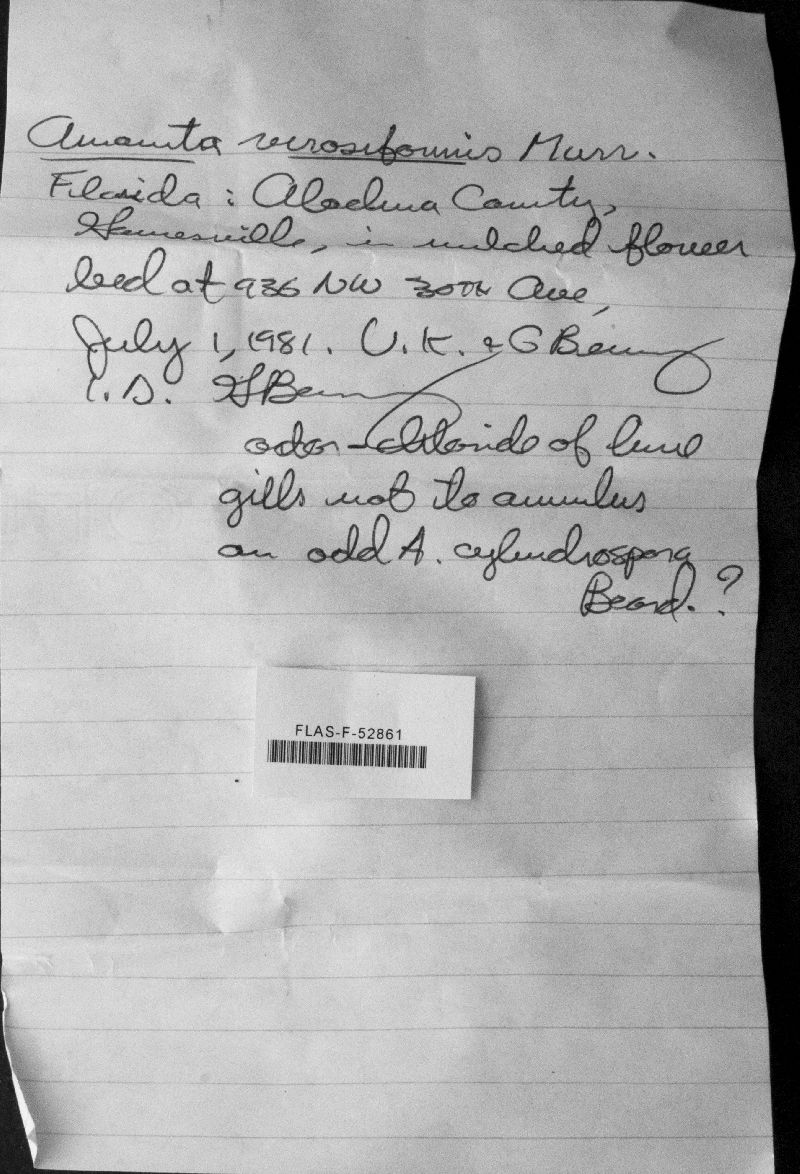 Amanita virosiformis Murr.
Florida : Alachua County,
Gainesville, in mulched flower
bed at 936 NW 30TH Ave,
July 1, 1981. U. K. & G Benny
I. D. G Benny
odor - chloride of lime
gills not to annulus
an odd A. cylindrospora
Beard. ?
FLAS-F-52861